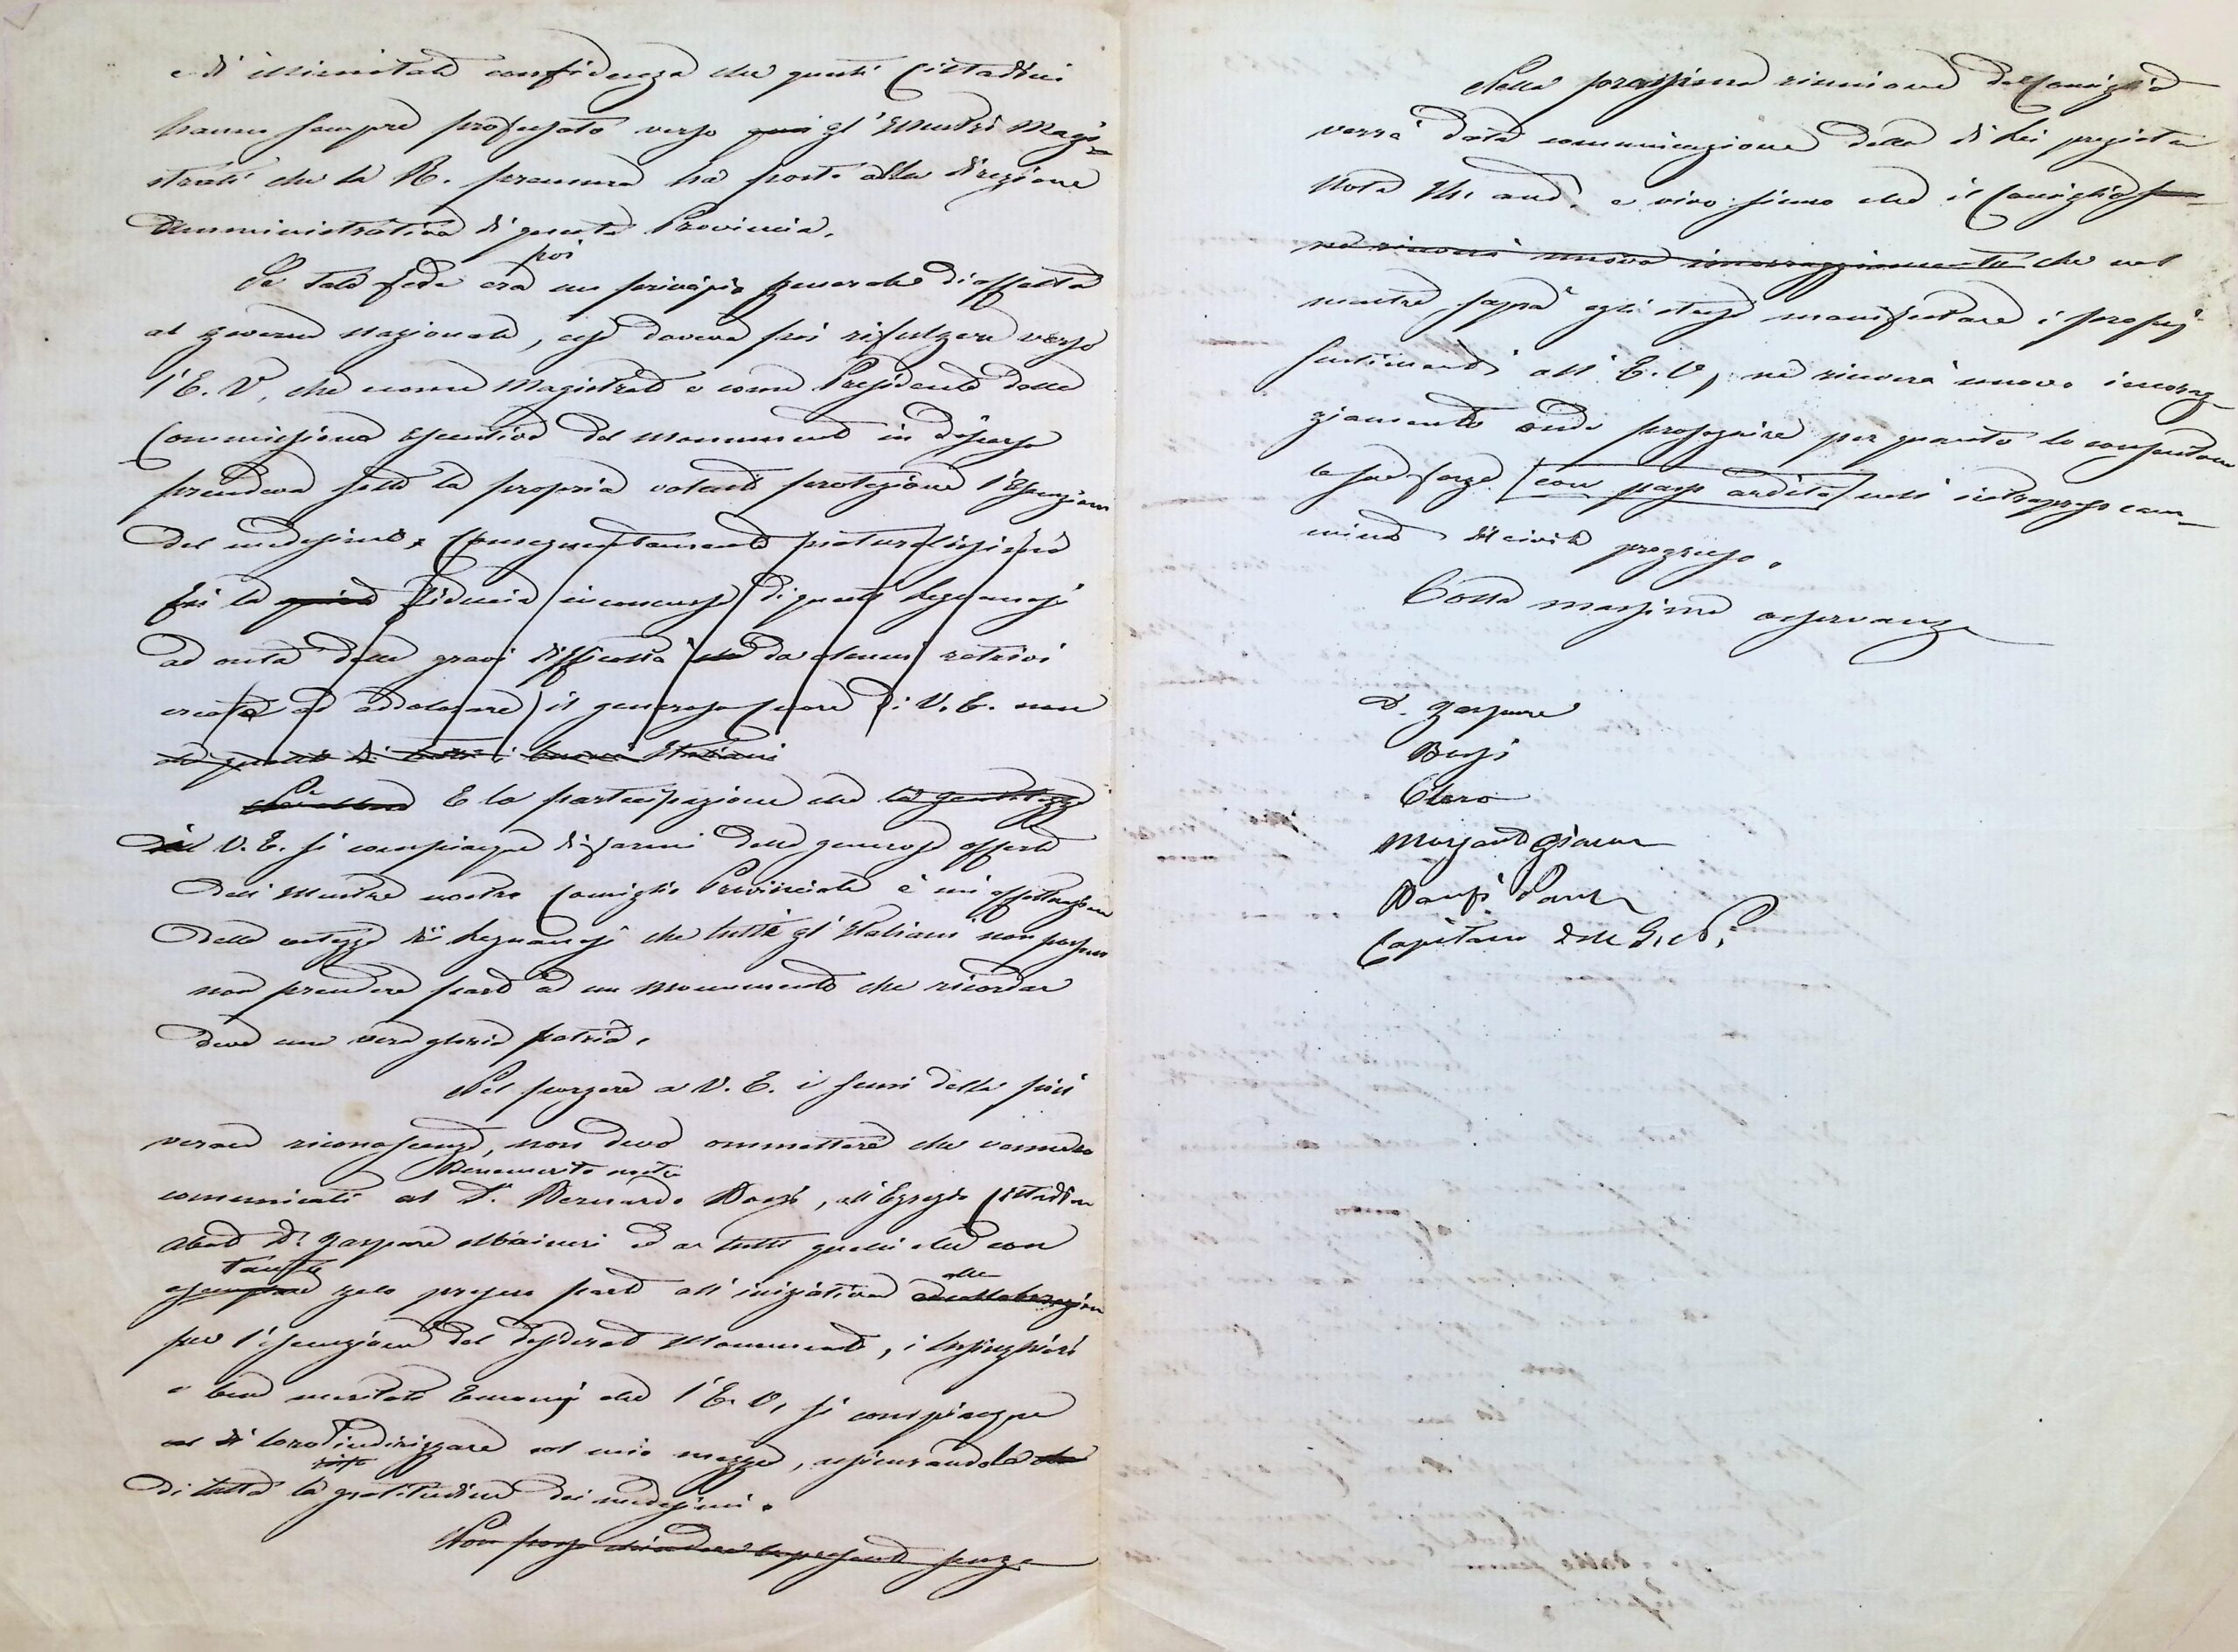 e di illimitata confidenza che questi Cittadini
hanno sempre professato verso gl'Illustri Magi-
strati che la R. premura ha posto alla direzione
Amministrativa di questa Provincia.
poi
Se tale fede era un principio generale di affetto
al governo Nazionale, essa doveva poi rifulgere verso
l'E. V. che come Magistrato e come Presidente della
Commissione Esecutiva del Monumento in discorso
prendeva sotto la propria valente protezione l'Esecuzione
del medesimo. Conseguentemente
fu la fiducia inconcussa di questi Legnanesi
ad onta delle gravi difficoltà da alcuni retrivi
create ad addolorare il generoso cuore di V. E. non
che quello di tutti i buoni Italiani
E la partecipazione che la gentilezza
V. E. si compiacque di farmi della generosa offerta
dell'Illustre nostro Consiglio Provinciale è
della certezza dei Legnanesi che tutti gl'Italiani non possono
non prendere parte ad un Monumento che ricordar
deve una vera gloria patria.
Nel porgere a V. E. i sensi della più
verace riconoscenza, non devo ommettere che vennero
Benemerito nostro
comunicati al D. Bernardo Bossi, all'Egregio Cittadino
Abate D. Gaspare ed a tutti quelli che con
tanto
esemplare zelo presero parte all'iniziativa
alla
per l'esecuzione del desiderato Monumento, i lusinghieri
e ben meritati Encomj che l'E. V. si compiacque
di loro indirizzare col mio mezzo, assicurandola
di tutta la gratitudine dei medesimi.
Non posso chiudere la presente senza
Nella prossima riunione del Consiglio
verrà data comunicazione della di Lei pregiata
Nota e vivo sicuro che il Consiglio
ne riceverà nuovo incoraggiamento che nel
mentre saprà egli stesso manifestare i proprj
sentimenti all'E. V., ne riceverà nuovo incorag-
giamento onde proseguire per quanto lo consentano
le sue forze con passo ardito nell'intrapreso cam-
mino di civile progresso.
Colla massima osservanza
D. Gaspare
Bossi
Clero
Dansi Paolo
Capitano della G. N.